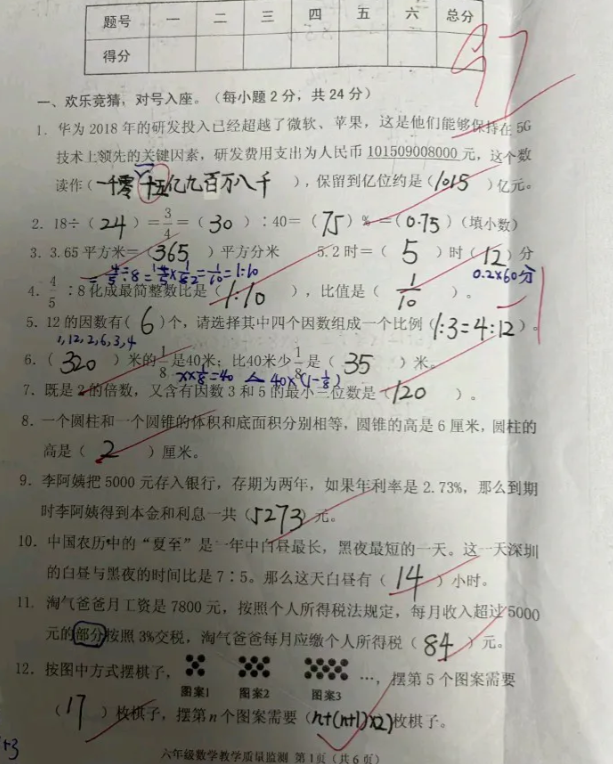 题号 一 二 三 四 五 六 总分
得分
97
一、欢乐竞猜，对号入座。（每小题2分，共24分）
1. 华为2018年的研发投入已经超越了微软、苹果，这是他们能够保持在5G
技术上领先的关键因素，研发费用支出为人民币101509008000元，这个数
读作（一千零一十五亿九百万八千），保留到亿位约是（1015）亿元。
2. 18÷（24）=3/4=（30）：40=（75）%=（0.75）（填小数）
3. 3.65平方米=（365）平方分米 5.2时=（5）时（12）分
=4/5÷8=4/5×1/8=1/10=1:10 0.2×60分
4. 4/5：8化成最简整数比是（1:10），比值是（1/10）。
5. 12的因数有（6）个，请选择其中四个因数组成一个比例（1:3=4:12）。
1,12,2,6,3,4
6.（320）米的1/8是40米；比40米少1/8是（35）米。
x×1/8=40 40×(1-1/8)
7. 既是2的倍数，又含有因数3和5的最小三位数是（120）。
8. 一个圆柱和一个圆锥的体积和底面积分别相等，圆锥的高是6厘米，圆柱的
高是（2）厘米。
9. 李阿姨把5000元存入银行，存期为两年，如果年利率是2.73%，那么到期
时李阿姨得到本金和利息一共（5273）元。
10. 中国农历中的“夏至”是一年中白昼最长，黑夜最短的一天。这一天深圳
的白昼与黑夜的时间比是7：5。那么这天白昼有（14）小时。
11. 淘气爸爸月工资是7800元，按照个人所得税法规定，每月收入超过5000
元的部分按照3%交税，淘气爸爸每月应缴个人所得税（84）元。
12. 按图中方式摆棋子，
图案1 图案2 图案3 …，摆第5个图案需要
（17）枚棋子，摆第n个图案需要（n+(n+1)×2）枚棋子。
+3
六年级数学教学质量监测 第1页（共6页）